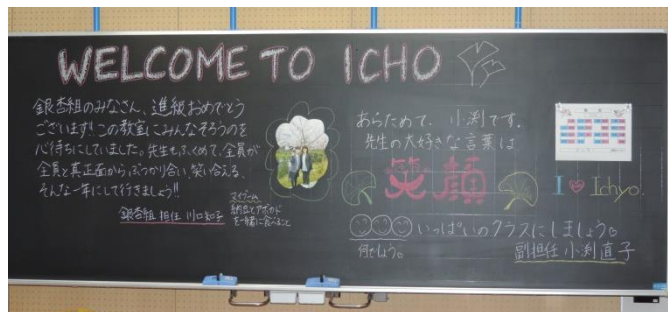 WELCOME TO ICHO
銀杏組のみなさん、進級おめでとう
ございます!!この教室にみんなそろうのを
心待ちにしていました。先生もふくめて、全員が
全員と真正面から、ぶつかり合い、笑い合える、
そんな一年にして行きましょう!!
銀杏組 担任 川口知子
マイブーム
納豆とアボカド
を一緒に食べること
あらためて、小渕です。
先生の大好きな言葉は
笑顔
I ♥ Ichyo.
いっぱいのクラスにしましょう。
何でしょう。
副担任 小渕直子